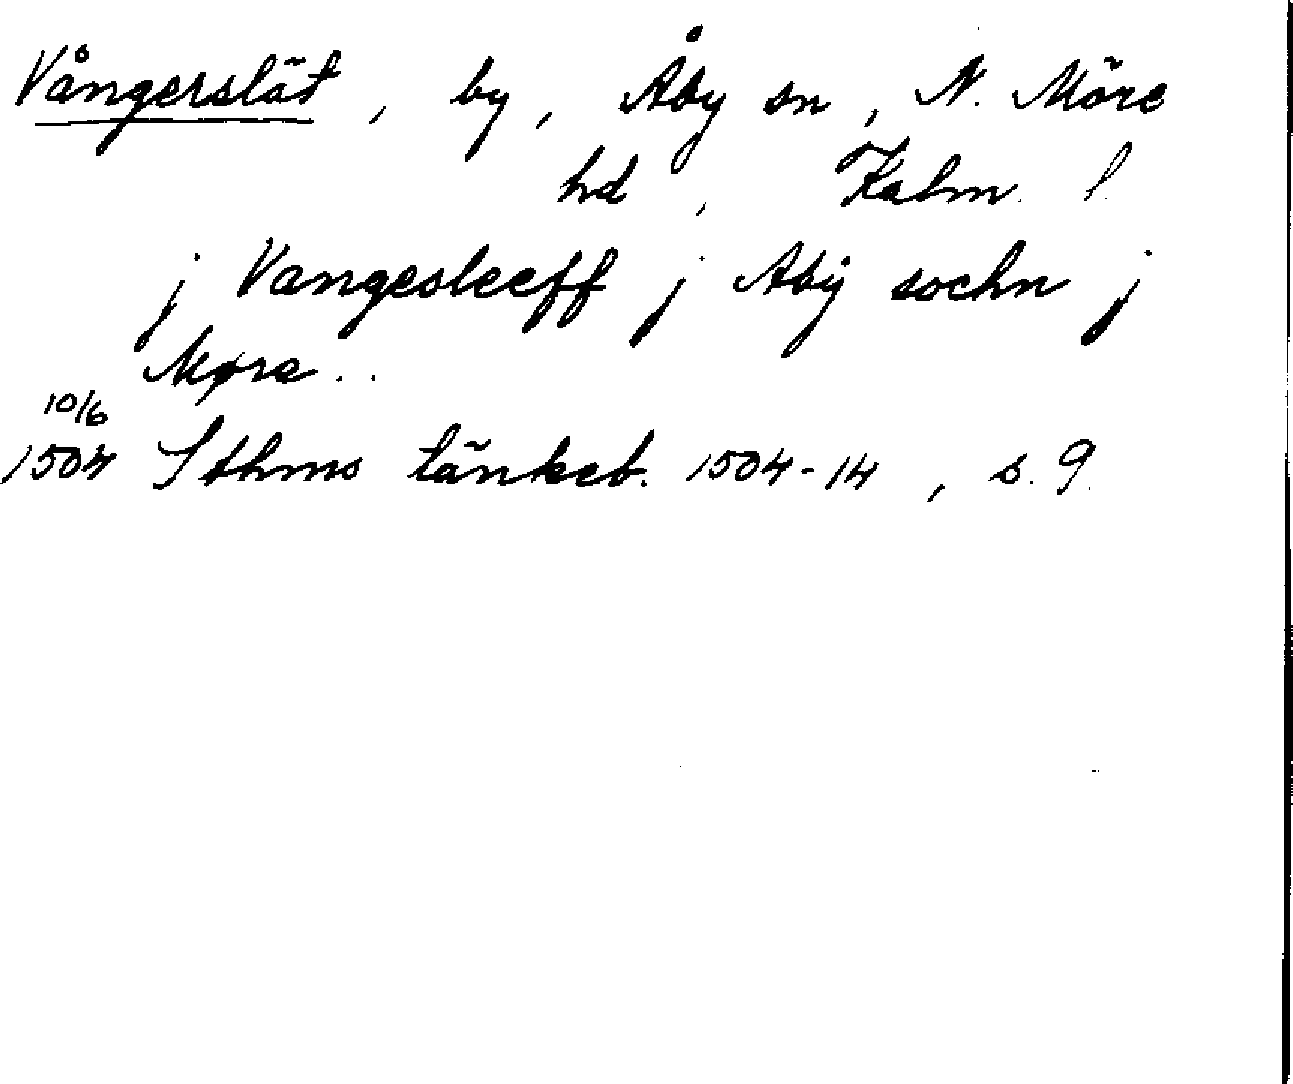 Vångerslät, by, Åby sn, N. Möre
hd, Kalm. l.
j Vangesleeff j Abÿ sochn j
Møre..
10/6
1504 Sthms tänkeb. 1504-14, s. 9.